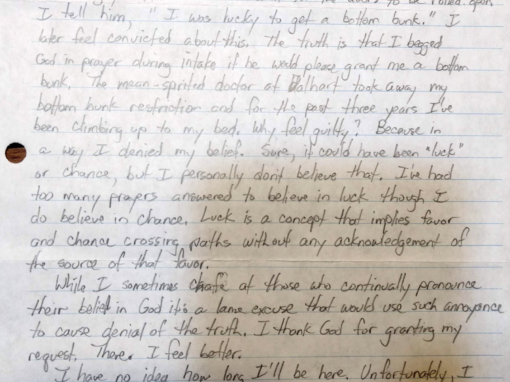 to be rolled open.
I tell him, "I was lucky to get a bottom bunk." I
later feel convicted about this. The truth is that I begged
God in prayer during intake if he would please grant me a bottom
bunk. The mean-spirited doctor at Dalhart took away my
bottom bunk restriction and for the past three years I've
been climbing up to my bed. Why feel guilty? Because in
a way I denied my belief. Sure, it could have been "luck"
or chance, but I personally don't believe that. I've had
too many prayers answered to believe in luck though I
do believe in chance. Luck is a concept that implies favor
and chance crossing paths without any acknowledgement of
the source of that favor.
While I sometimes chafe at those who continually pronounce
their belief in God it's a lame excuse that would use such annoyance
to cause denial of the truth. I thank God for granting my
request. There. I feel better.
I have no idea how long I'll be here. Unfortunately, I